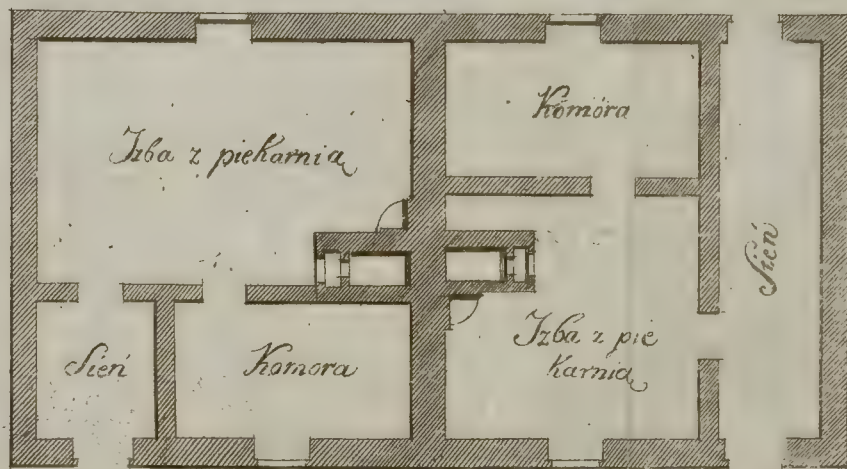 Izba z piekarnią
Komóra
Sień
Sień
Komora
Izba z pie
karnią